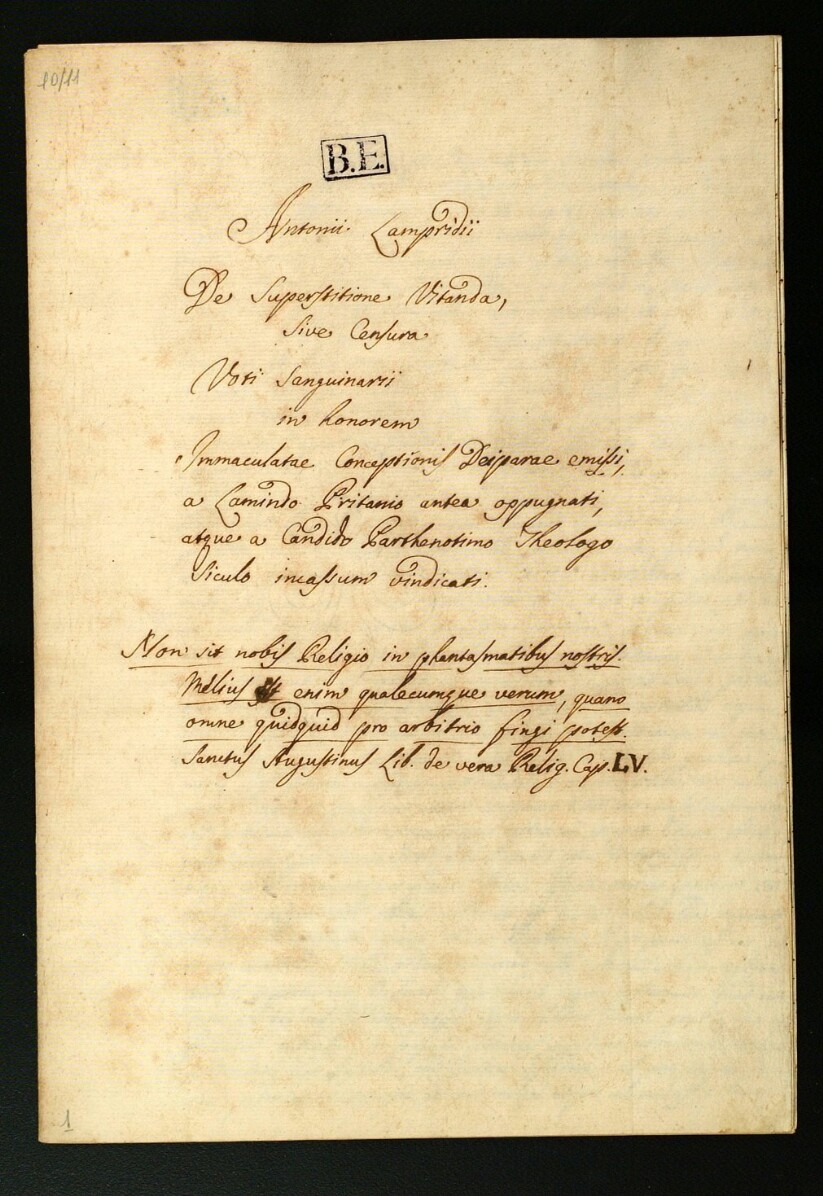 10/11
B.E.
Antonii Lampridii
De Superstitione Vitanda,
Sive Censura
Voti Sanguinarii
in honorem
Immaculatae Conceptionis Deiparae emissi,
a Lamindo Pritanio antea oppugnati,
atque a Candido Parthenotimo Theologo
Siculo incassum vindicati.
Non sit nobis Religio in phantasmatibus nostris.
Melius est enim qualecumque verum, quam
omne quidquid pro arbitrio fingi potest.
Sanctus Augustinus Lib. de vera Relig. Cap. LV.
1